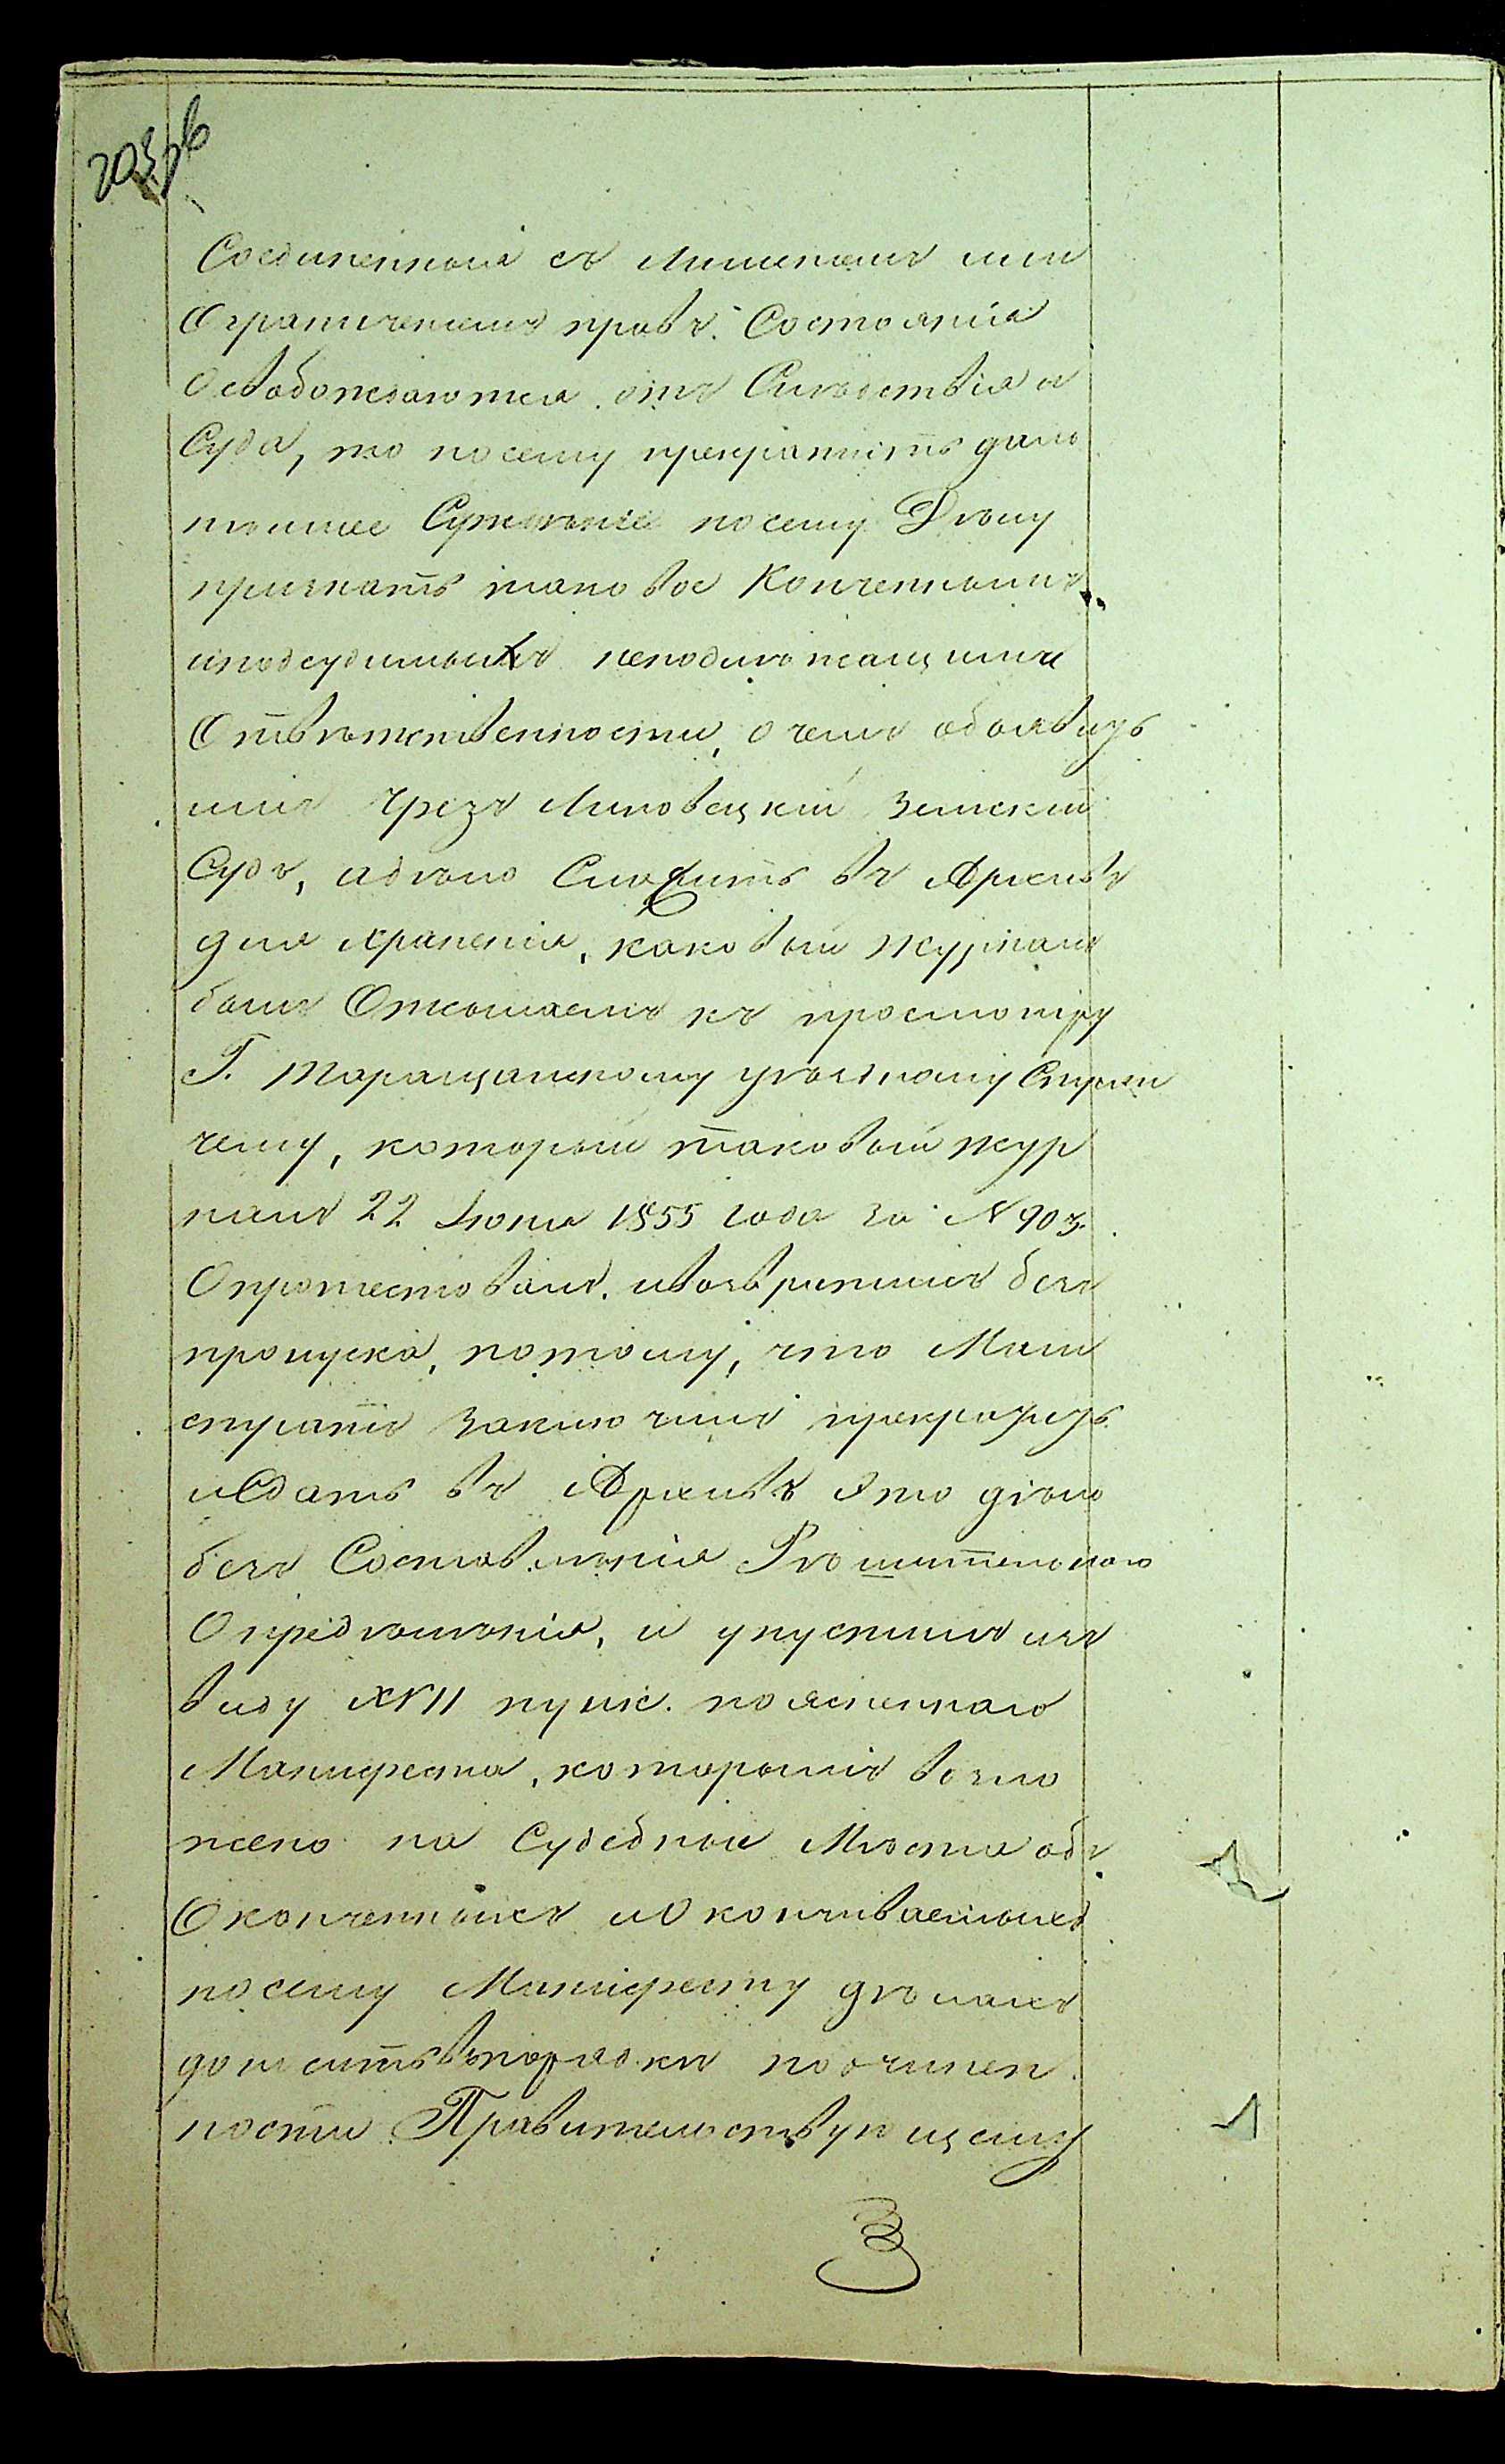 203об
Соединенныя съ лишеніемъ или
Ограниченіемъ правъ Состоянія
Освобождаются отъ Слѣдствія и
Суда, то посему прекратить даль
нѣйшее Сужденіе посему Дѣлу
признать таковое Конченнымъ
иподсудимыхъ неподлѣжащими
Отвѣтственности, о чемъ объявить
имъ чрезъ Липовецкій Земскій
Судъ, адѣло Сдать въ Архивъ
для храненія, каковый журналъ
былъ Отсылаемъ къ просмотру
Г. Таращанскому уѣздному Стряп
чему, который таковый жур
налъ 22 Іюня 1855 года за № 903.
Опротестовалъ ивозвратилъ безъ
пропуска, потому, что Маги
стратъ заключилъ прекратить
иСдать въ Архивъ это дѣло
безъ Составленія Рѣшительнаго
Опредѣленія, и упустилъ изъ
виду XVII пунк. поясненнаго
Манифеста, которымъ возло
жено на Судебныя Мѣста объ
Оконченныхъ иОканчиваемыхъ
посему Манифесту дѣлахъ
доноситьвпорядкѣ подчинен
ности Правительствующему